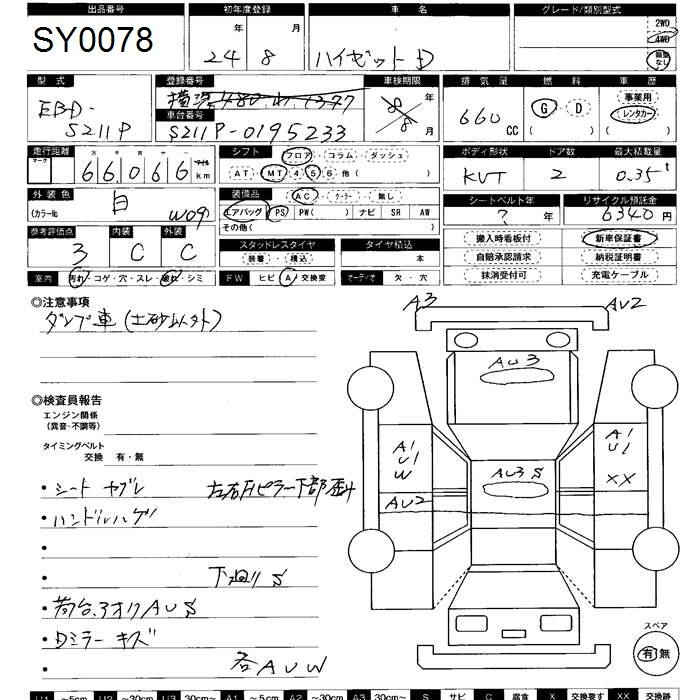 出品番号 初年度登録 車名 グレード/類別型式
SY0078 24年 8月 ハイゼットD 2WD 4WD
型式 登録番号 車検期限 排気量 燃料 車歴
EBD-S211P 横浜480 年 8月 660CC G・D ( ) 事業用 レンタカー ( )
車台番号
S211P-0195233
走行距離 シフト ボディ形状 ドア数 最大積載量
マーク 66066 マイル km フロア・コラム・ダッシュ
AT・MT 4 5 6 他( ) KVT 2 0.35t
外装色 装備品 シートベルト年 リサイクル預託金
(カラーNo. 白 W09) AC・クーラー・無し ?年 6340円
エアバッグ PS PW( ) ナビ SR AW
その他( )
参考評価点 内装 外装 搬入時看板付 新車保証書
3 C C スタッドレスタイヤ タイヤ積込 自賠承認請求 納税証明書
装着・積込 本 抹消受付可 充電ケーブル
室内 汚れ・コゲ・穴・スレ・破れ・シミ FW ヒビ A 交換要 オーディオ 欠・穴
◎注意事項
ダンプ車(土砂以外)
A3 AU2
AU3
◎検査員報告
エンジン関係
(異音・不調等)
タイミングベルト
交換 有・無
A1 U1 W
A1 U1 XX
AU3 S
AU2
・シート ヤブレ 左右Fピラー下部歪
・ハンドルハゲ
・
・ 下廻りS
・荷台、アオリAUS
・Dミラー キズ
・ 各AUW
スペア
有 無
U1 ～5cm U2 ～30cm U3 30cm～ A1 ～5cm A2 ～30cm A3 30cm～ S サビ C 腐食 X 交換要す XX 交換跡